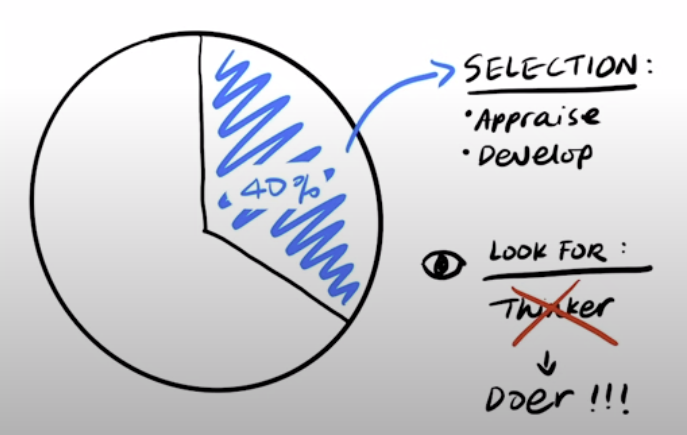 40%
SELECTION:
• Appraise
• Develop
LOOK FOR:
Thinker
Doer !!!